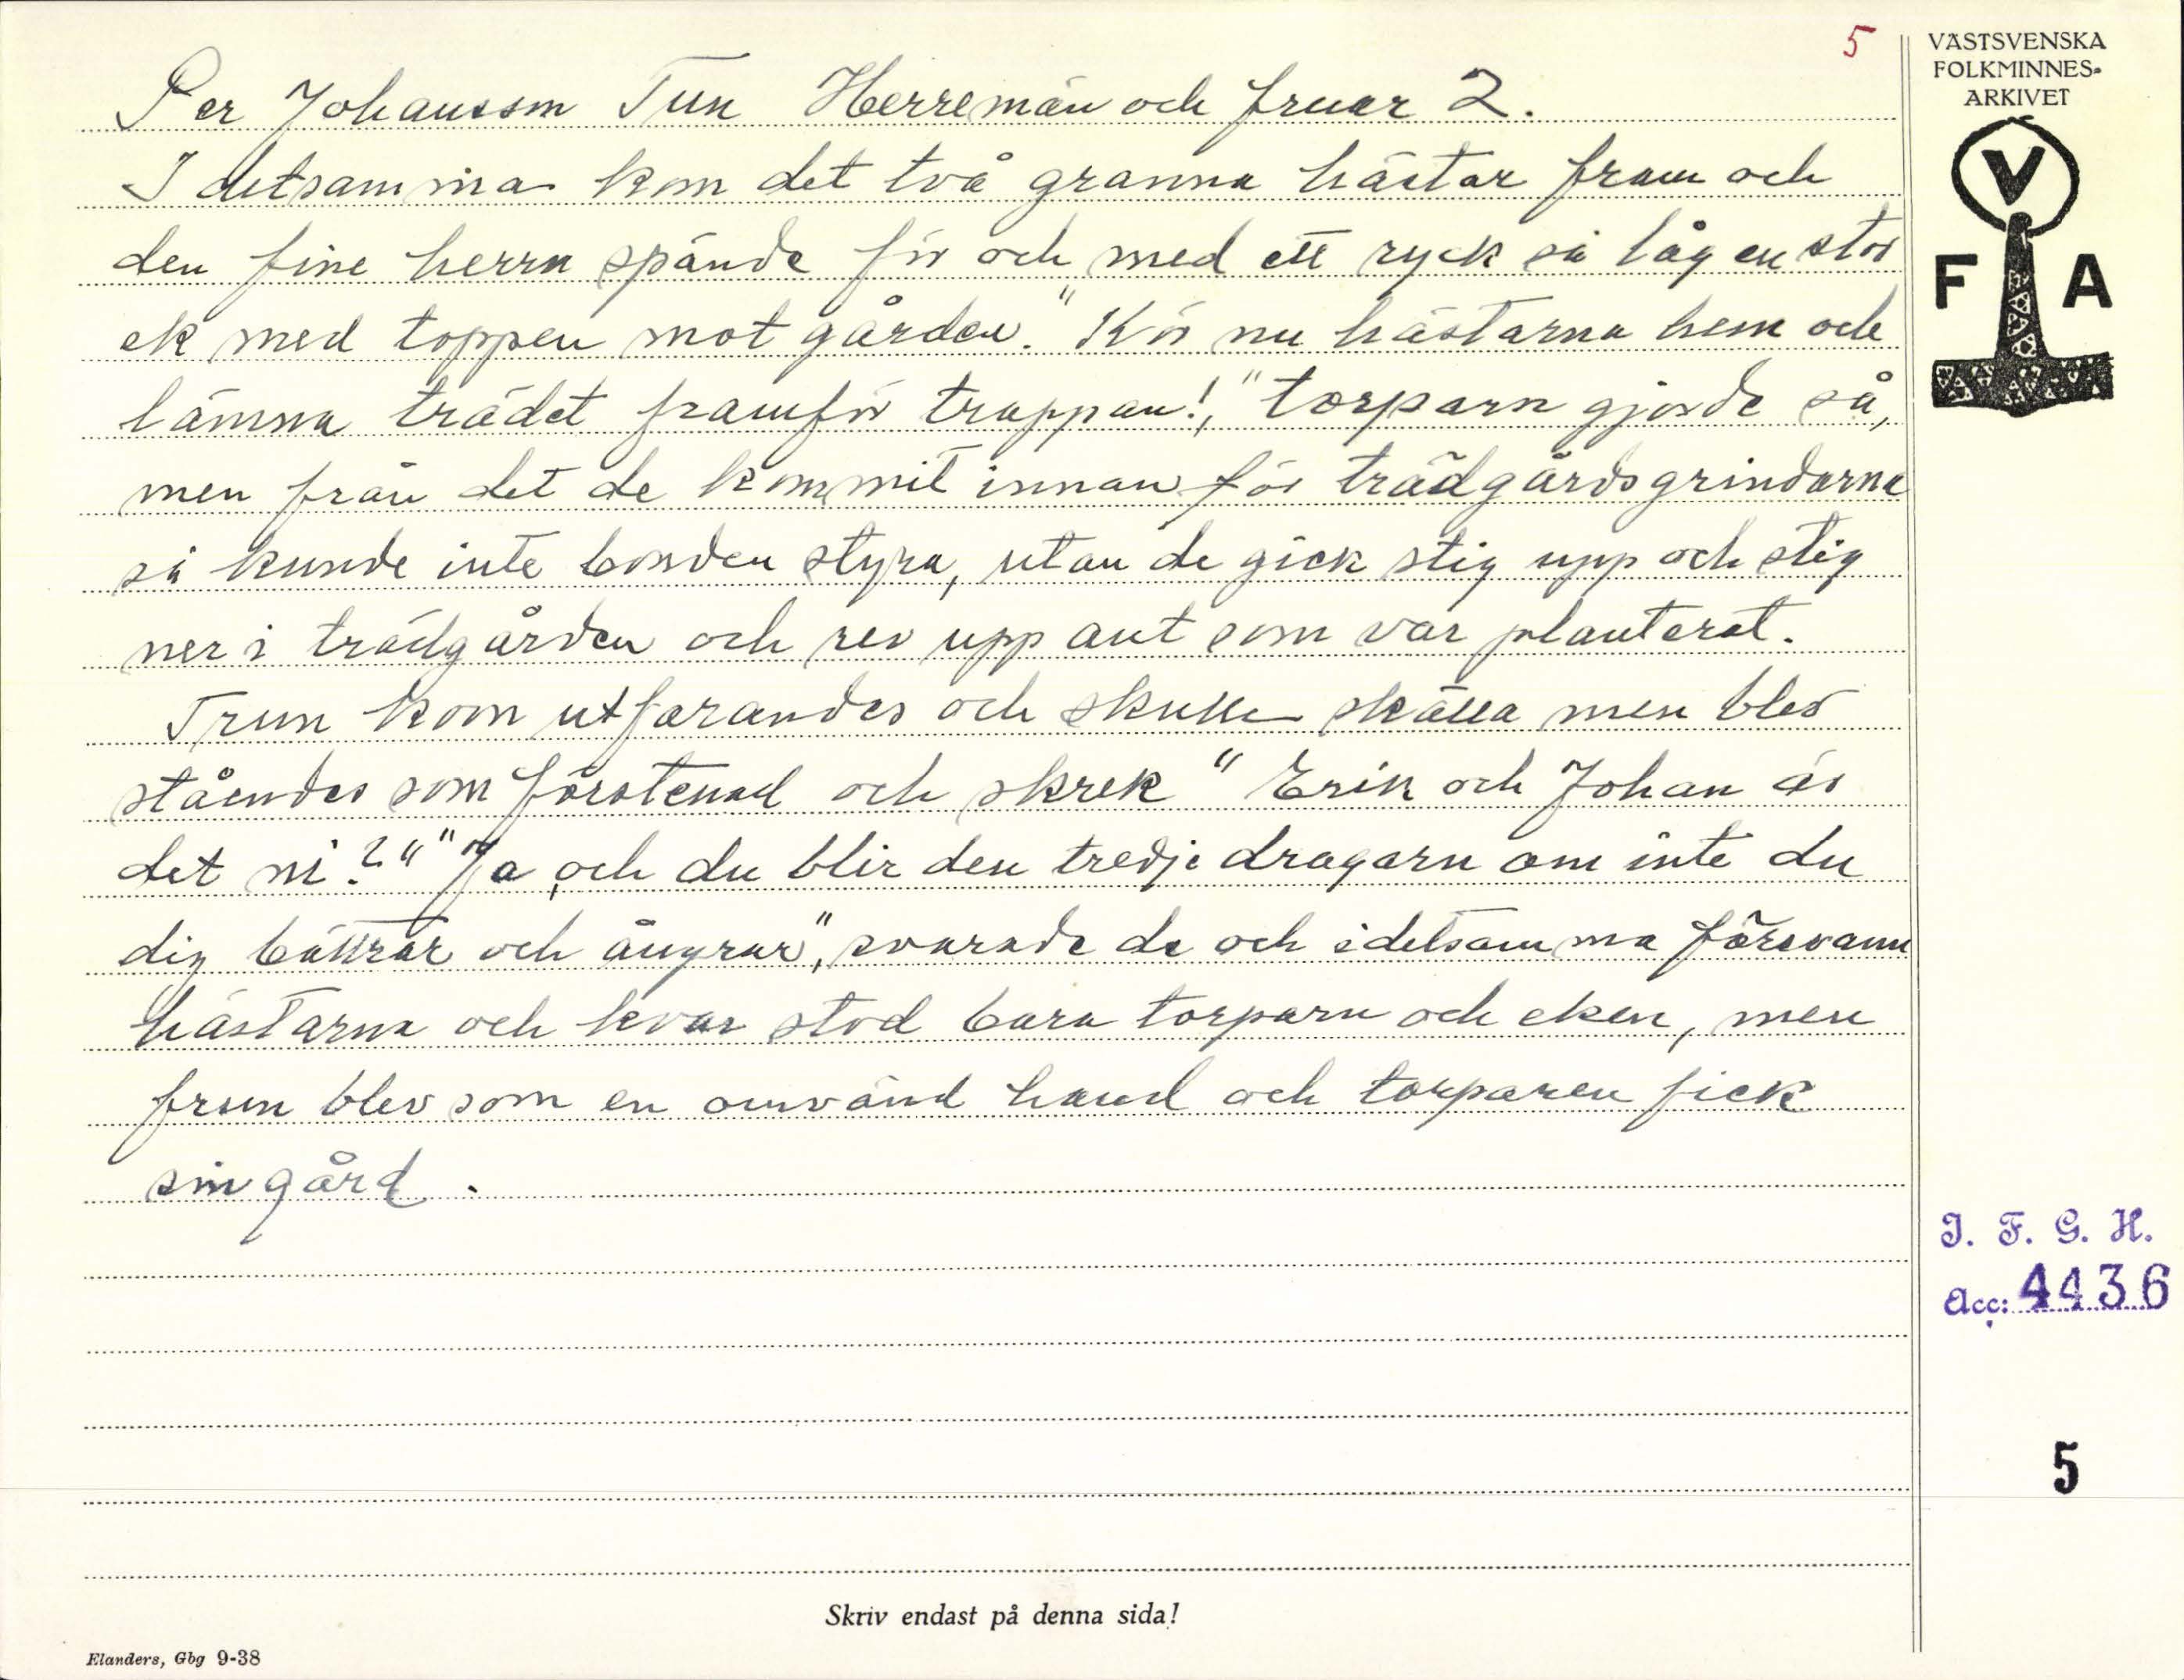 5
VÄSTSVENSKA
FOLKMINNES-
ARKIVET
V
F A
Per Johansson Tun Herremän och fruar 2.
I detsamma kom det två granna hästar fram och
den fine herrn spände för och med ett ryck så låg en stor
ek med toppen mot gården. "Kör nu hästarna hem och
lämna trädet framför trappan!," torparn gjorde så,
men från det de kommit innan för trädgårdsgrindarna
så kunde inte bonden styra, utan de gick stig upp och stig
ner i trädgården och rev upp allt som var planterat.
Frun kom utfarandes och skulle skälla men blev
ståendes som förstenad och skrek "Erik och Johan är
det ni?" "Ja, och du blir den tredje dragarn om inte du
dig bättrar och ångrar", svarade de och i detsamma försvann
hästarna och kvar stod bara torparn och eken, men
frun blev som en omvänd hand och torparen fick
sin gård.
I. F. G. H.
Acc: 4436
5
Skriv endast på denna sida!
Elanders, Gbg 9-38